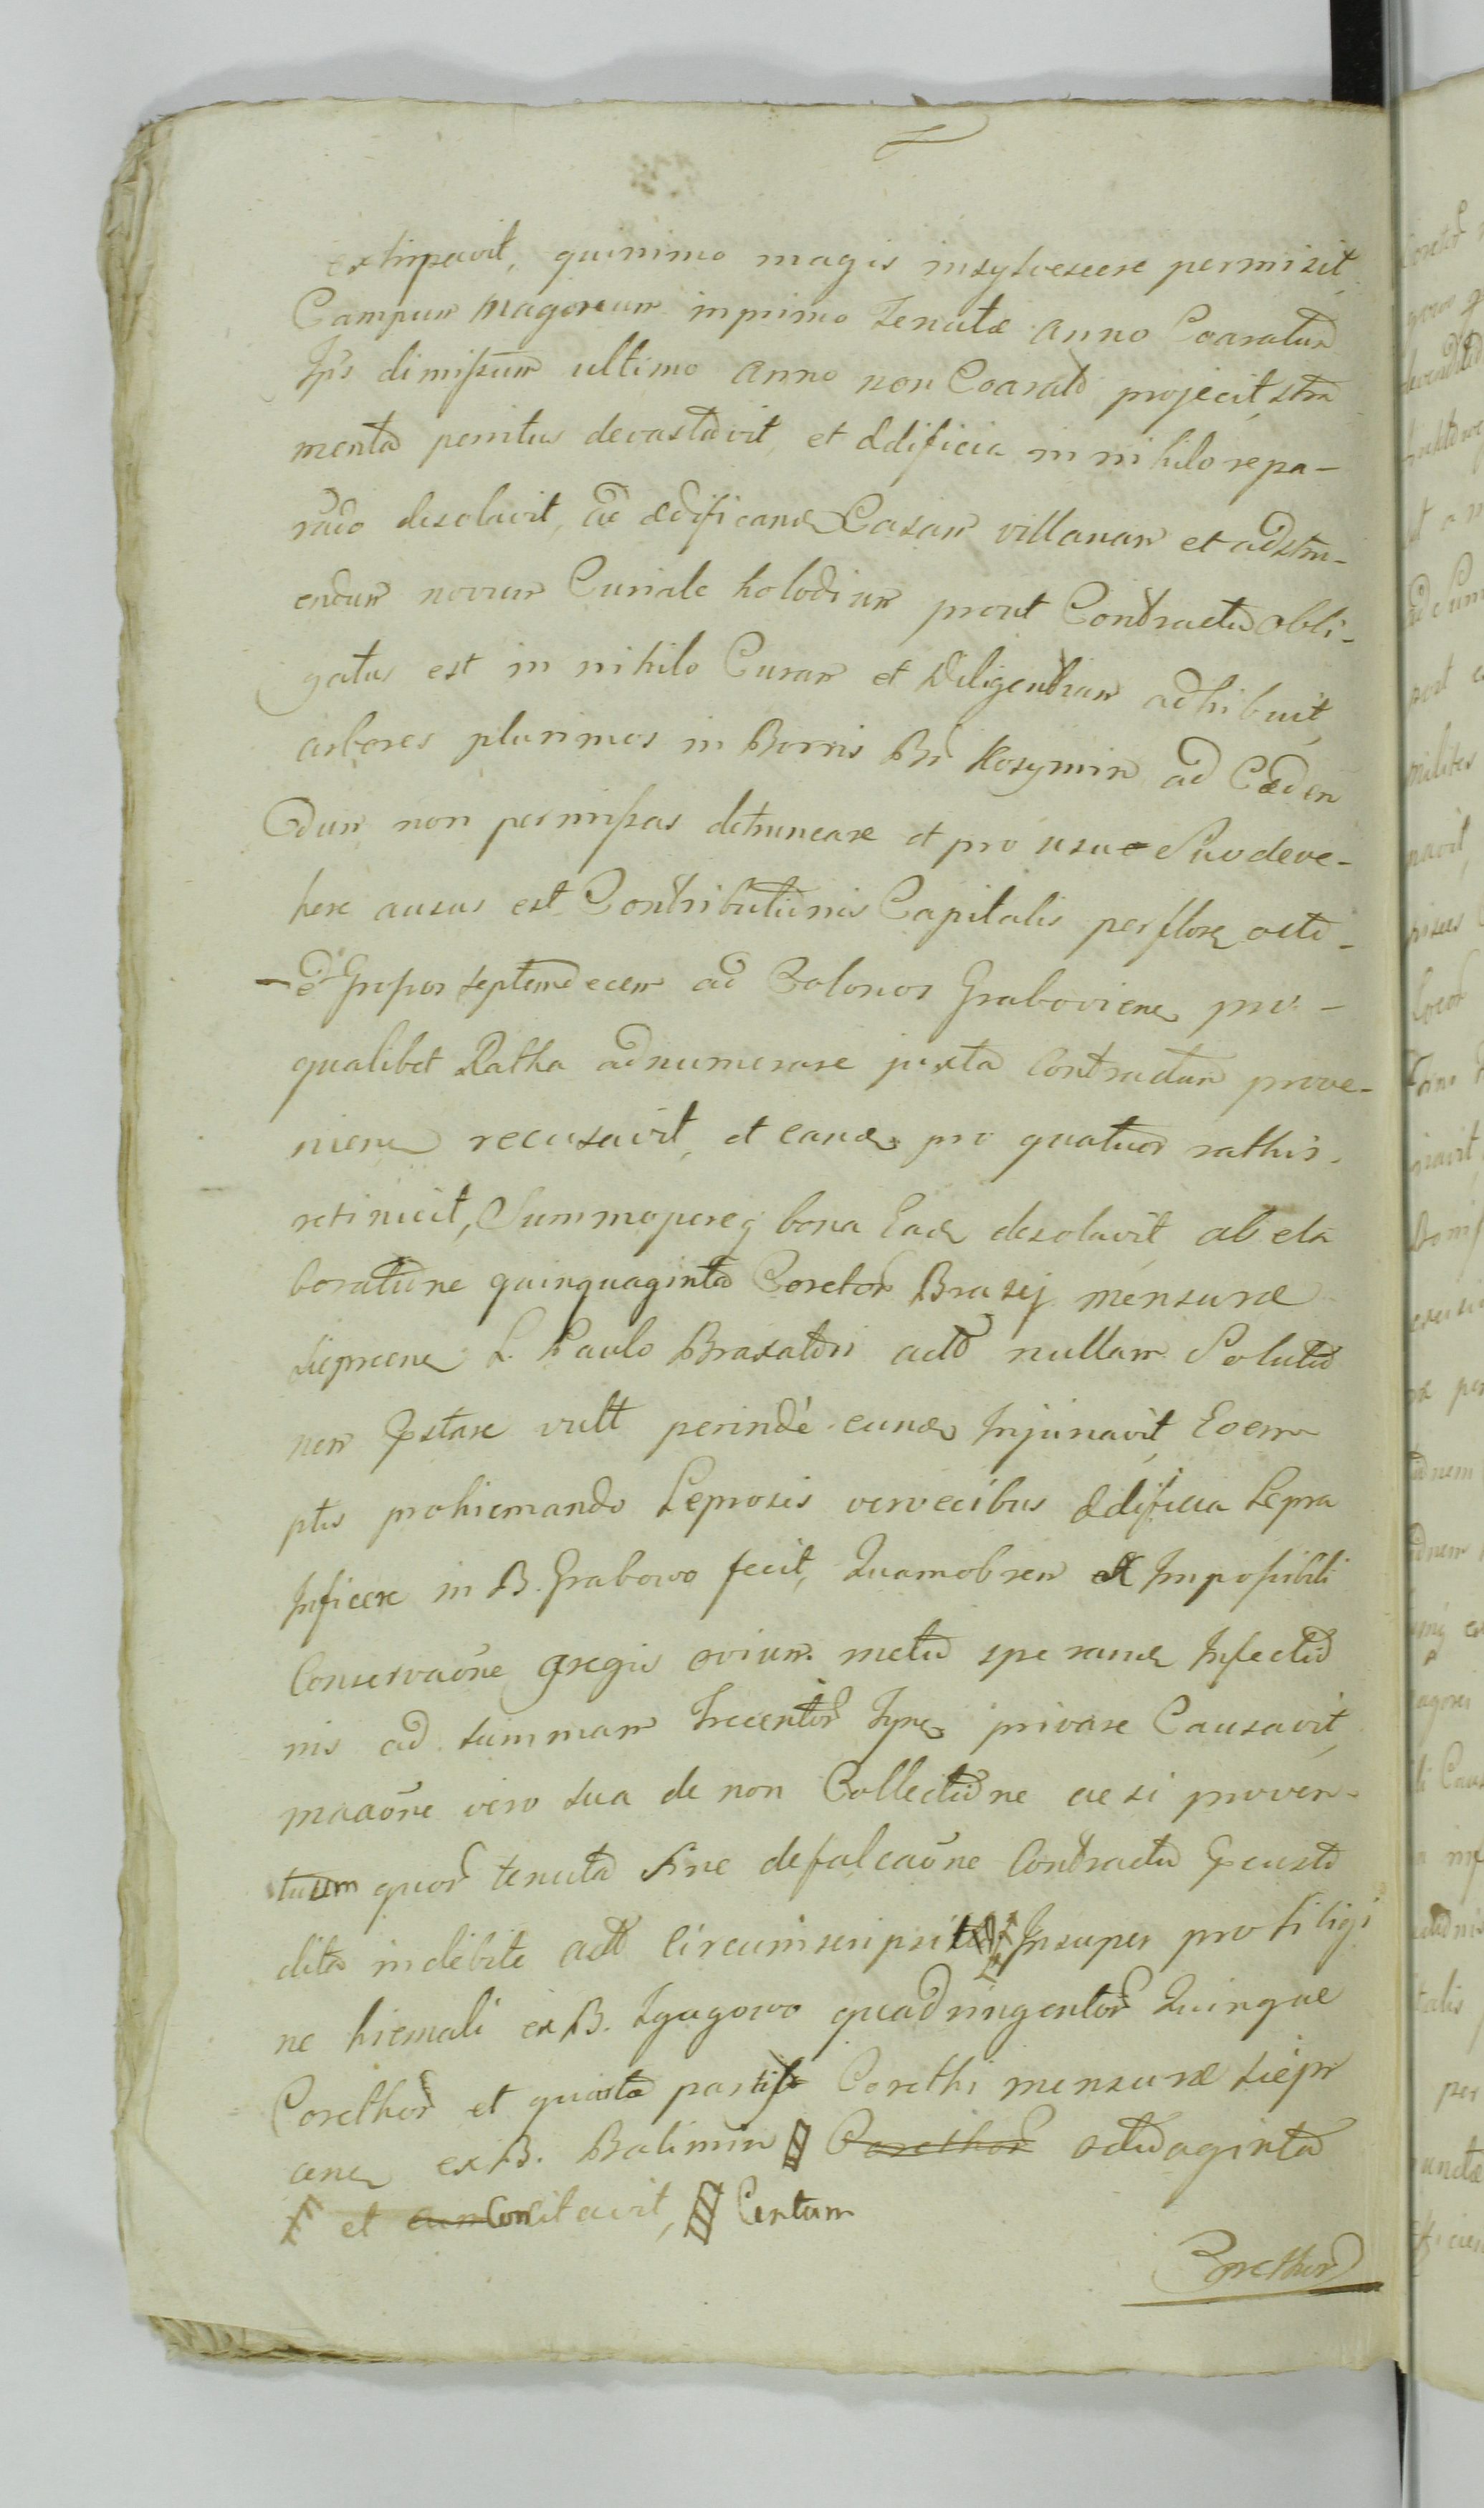 extirpavit, quinimo magis insylvescere permisit,
Campum Majorum inprimo Tenutæ Anno Coaratum
Ips dimissum ultimo Anno non Coarato projecit, stra
menta penitus devastavit, et Ædificia in nihilo repa-
rado desolavit, ad ædificand Casam villanam et adstru-
endum novum Curiale holodium prout Contractu obli-
gatus est in nihilo Curam et Diligentiam adhibuit,
arbores plurimos in Borris Br Kosymin ad Cæden
dum non permissas detruncare et pro usu Suo deve-
here ausus est Contributionis Capitalis per flor octo
et Grossos septemdecem ad Colonos Graboviens pro-
qualibet Ratha adnumerare juxta Contractum prove-
niens recusavit, et eand pro quatuor rathis
retinuit, Summopereq bona Ead desolavit ab ela
boratione quinquaginta Coretor Brasij mensuræ
Siepreens L. Paulo Braxatori acto nullam Solutio
nem pstare vult perinde eund Injuriavit, Eoem
ptis prohiemando Leprosis vervecibus Ædificia Lepra
Inficere in B. Grabowo fecit, Quamobrem et Impossibili
Conservaone gregis ovium metu sperand Infectio
nis ad summam Trecentor Tynf privare Causavit,
maaone vero sua de non Collectione acsi proven-
tuum quor tenuta sine defalcaone Contractu pcusto
dita indebite actt Circumscripsit Insuper pro siligi
ne hiemali ex B. Zgagowo quadringentor Quinque
Corethor et quarta partis Corethi mensuræ Siepr
cens ex B. Balimin Corethor octuaginta
et Concitavit, Centum
Corethor